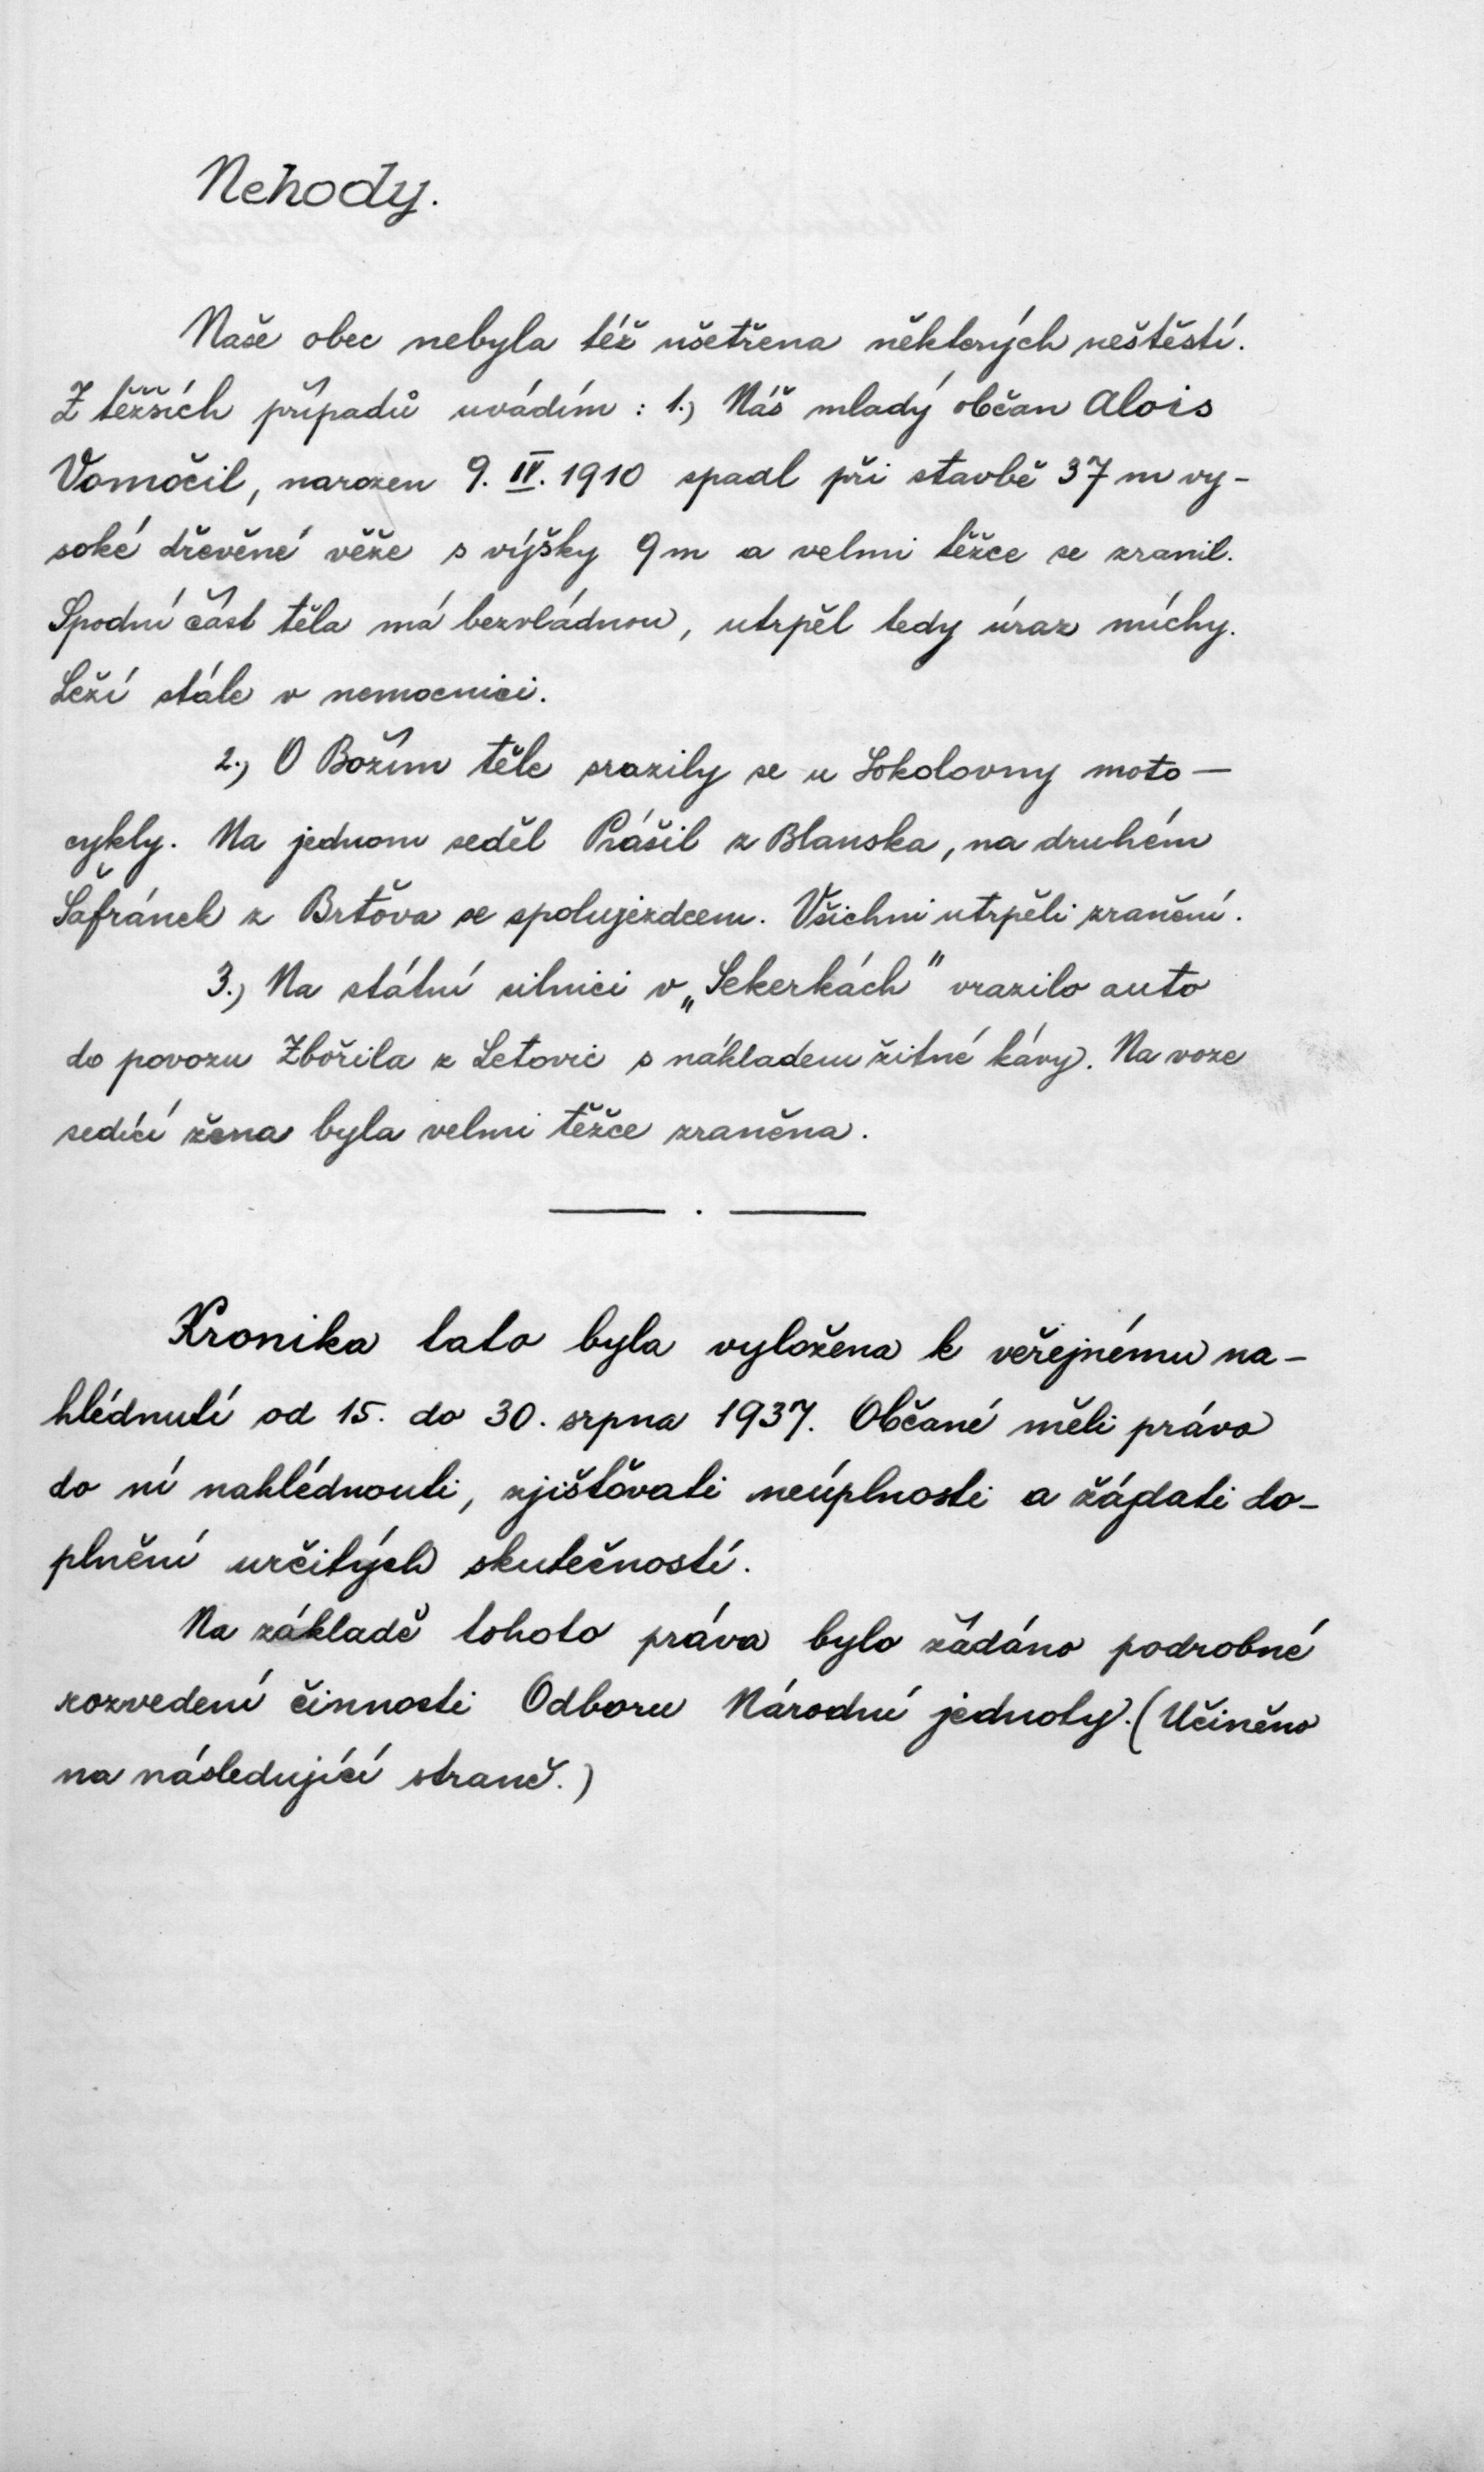 Nehody.
Naše obec nebyla též ušetřena některých neštěstí.
Z těžších případů uvádím : 1.) Náš mladý občan Alois
Vomočil, narozen 9. IV. 1910 spadl při stavbě 37 m vy-
soké dřevěné věže s výšky 9 m a velmi těžce se zranil.
Spodní část těla má bezvládnou, utrpěl tedy úraz míchy.
Leží stále v nemocnici.
2.) O Božím těle srazily se u Sokolovny moto-
cykly. Na jednom seděl Prášil z Blanska, na druhém
Šafránek z Brťova se spolujezdcem. Všichni utrpěli zranění.
3.) Na státní silnici v „Sekerkách" vrazilo auto
do povozu Zbořila z Letovic s nákladem žitné kávy. Na voze
sedící žena byla velmi těžce zraněna.
Kronika tato byla vyložena k veřejnému na-
hlédnutí od 15. do 30. srpna 1937. Občané měli právo
do ní nahlédnouti, zjišťovati neúplnosti a žádati do-
plnění určitých skutečností.
Na základě tohoto práva bylo žádáno podrobné
rozvedení činnosti Odboru Národní jednoty. (Učiněno
na následující straně.)